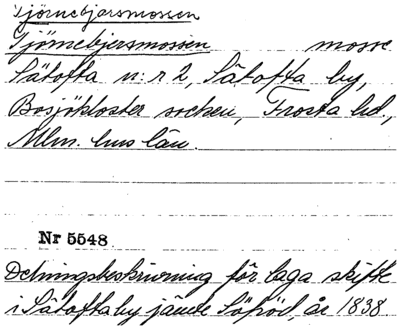 Tjörnebjersmossen
Tjörnebjersmossen mosse
Sätofta n:r 2, Sätofta by,
Bosjökloster socken, Frosta hd.,
Mlm. hus län.
Nr 5548
Delningsbeskrivning för laga skifte
i Sätofta by jämte Söpöd år 1838.